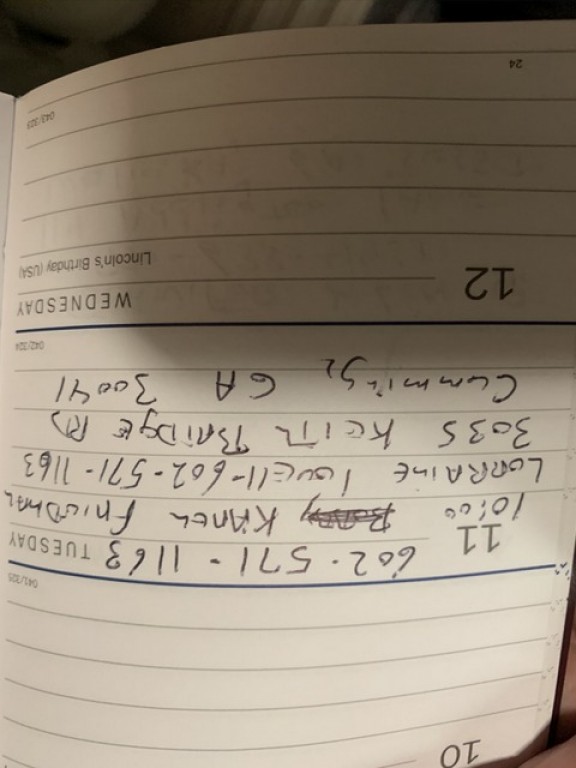 10
041/325
11 TUESDAY
602-571-1163
10:00 Karen Friedman
LORRAINE lovell-602-571-1163
3035 KEITH BRIDGE RD
Cumming, GA 30041
042/324
12 WEDNESDAY
Lincoln's Birthday (USA)
043/323
24